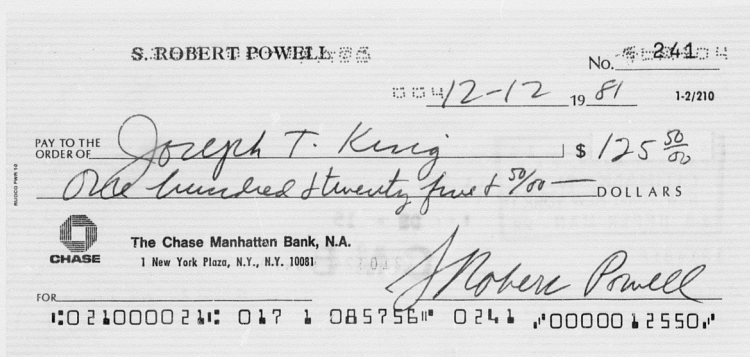 S. ROBERT POWELL
No. 241
12-12 19 81 1-2/210
PAY TO THE
ORDER OF Joseph T. King $ 125 50/00
One hundred & twenty five & 50/00 — DOLLARS
CHASE
The Chase Manhattan Bank, N.A.
1 New York Plaza, N.Y., N.Y. 10081
S Robert Powell
FOR
⑆021000021⑆ 017 1 085756⑈ 0241 ⑈0000012550⑈